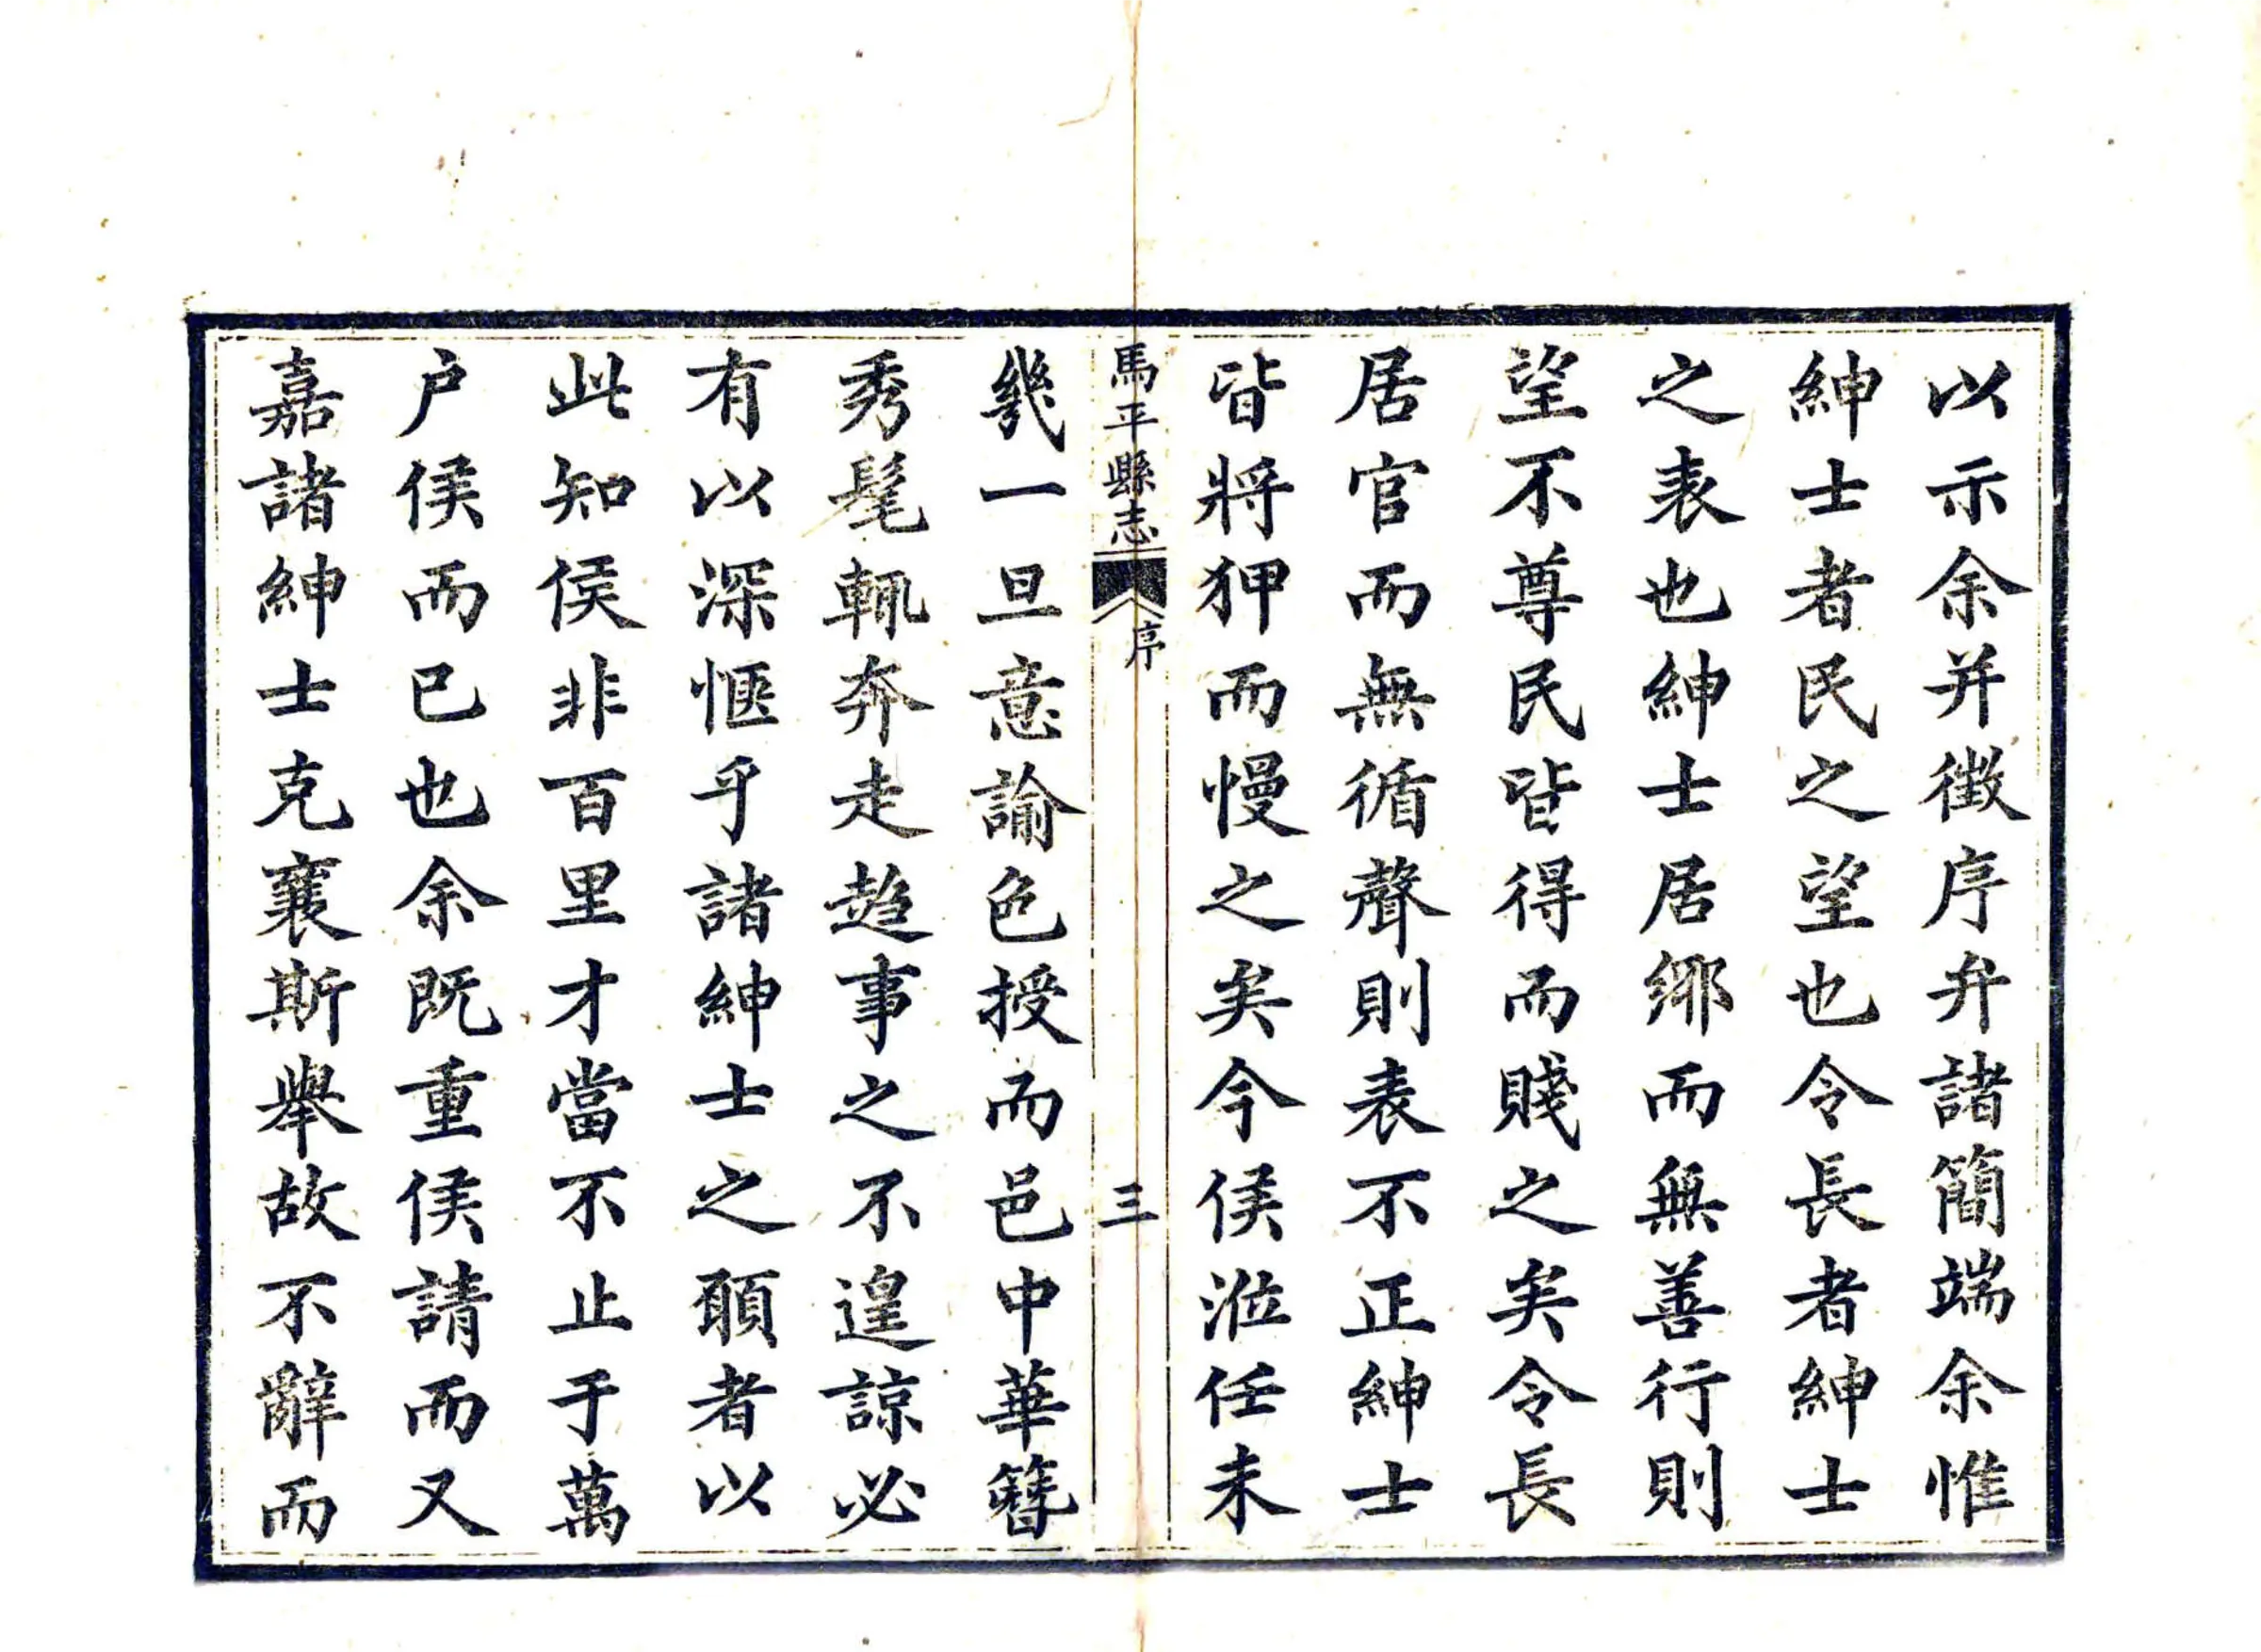 以示余并徵序弁諸簡端余惟
紳士者民之望也令長者紳士
之表也紳士居鄉而無善行則
望不尊民皆得而賤之矣令長
居官而無循聲則表不正紳士
皆將狎而慢之矣今侯涖任未
馬平縣志 序 三
幾一旦意諭色授而邑中華簪
秀髦輒奔走趨事之不遑諒必
有以深愜乎諸紳士之願者以
此知侯非百里才當不止于萬
户侯而已也余既重侯請而又
嘉諸紳士克襄斯舉故不辭而